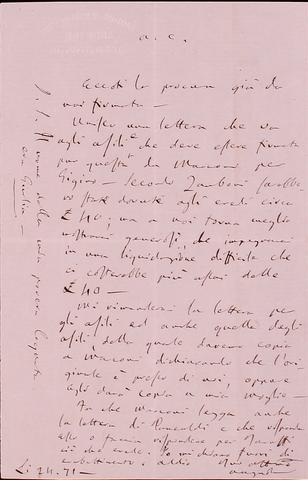 a. c.
Eccoti la procura già da
noi firmata —
Unisco una lettera che va
agli asili che deve essere firmata
pur questa da Marconi per
Gigino — Secondo Zamboni sarebbe-
ro state dovute agli eredi circa
£ 40; ma a noi torna meglio
mostrarci generosi, che impegnarci
in una liquidazione difficile che
ci costerebbe più assai delle
£ 40 —
Mi rimanderai la lettera per
gli asili ed anche quella degli
asili, della quale daremo copia
a Marconi dichiarando che l'ori-
ginale è presso di noi, oppure
egli darà copia a mia moglie —
Fa che Marconi legga anche
la lettera di
e che risponda
esso o faccia rispondere per
ciò che crede. Io mi
fuori di
addio
P. S. Il nome della mia povera
era Giulia —
Li 24. 71 —